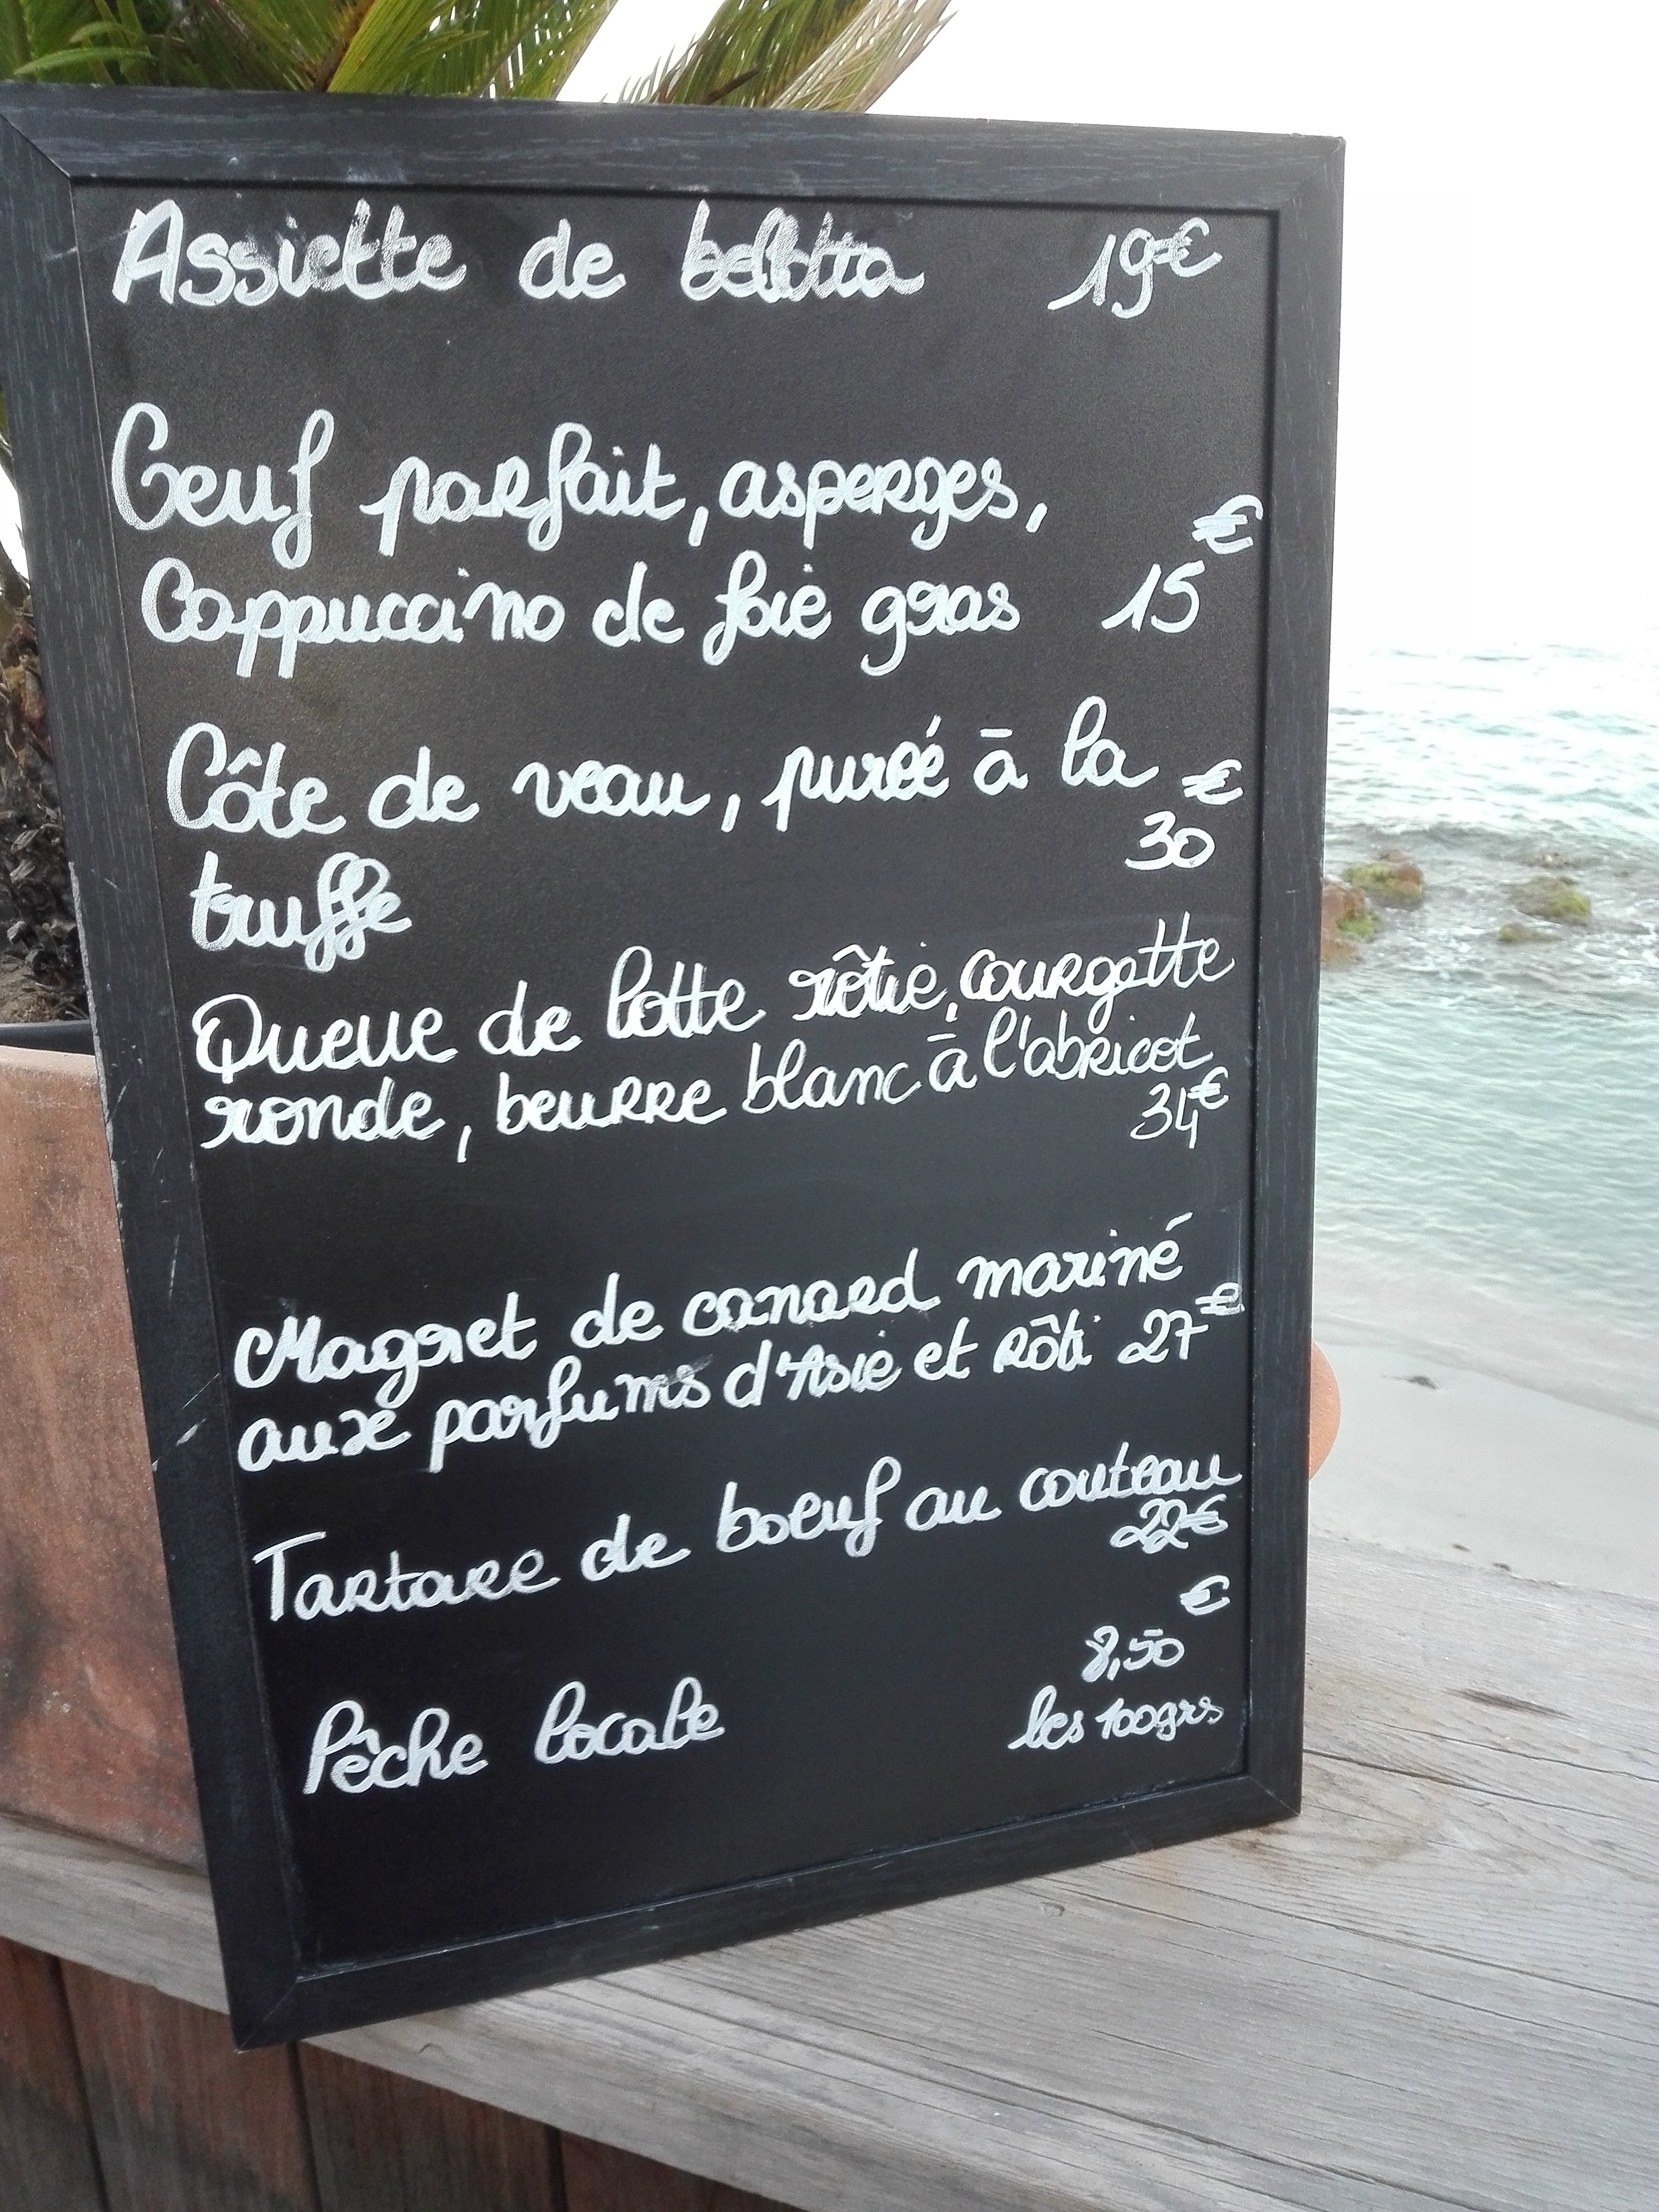 Assiette de bellotta 19€
Oeuf parfait, asperges,
Cappuccino de foie gras 15€
Côte de veau, purée à la
30€
truffe
Queue de lotte rôtie, courgette
ronde, beurre blanc à l'abricot
34€
Magret de canard mariné
aux parfums d'Asie et rôti 27€
Tartare de boeuf au couteau
22€
8,50€
Pêche locale les 100grs